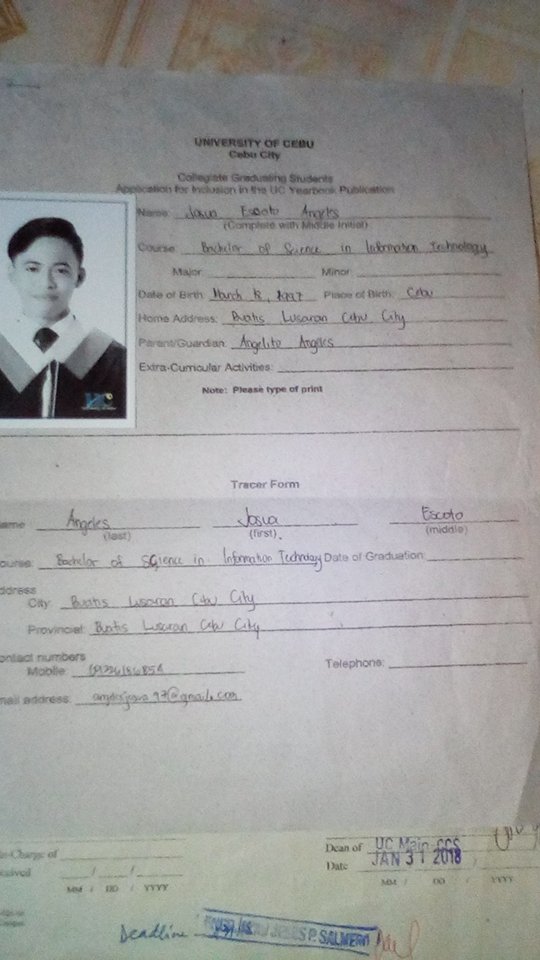 UNIVERSITY OF CEBU
Cebu City
Collegiate Graduating Students
Application for Inclusion in the UC Yearbook Publication
Name: Josua Escoto Angeles
(Complete with Middle Initial)
Course: Bachelor of Science in Information Technology
Major Minor
Date of Birth: March 18, 1997 Place of Birth: Cebu
Home Address: Lusaran Cebu City
Parent/Guardian: Angelito Angeles
Extra-Curricular Activities:
Note: Please type of print
UC
Tracer Form
ame Angeles Josua Escoto
(last) (first) (middle)
ourse Bachelor of Science in Information Technology Date of Graduation:
ddress
City: Lusaran Cebu City
Provincial: Lusaran Cebu City
ontact numbers
Mobile: Telephone:
mail address: @gmail.com
n-Charge of Dean of UC Main CCS
ceived Date JAN 31 2018
MM / DD / YYYY MM / DD / YYYY
Deadline P. SALMERO